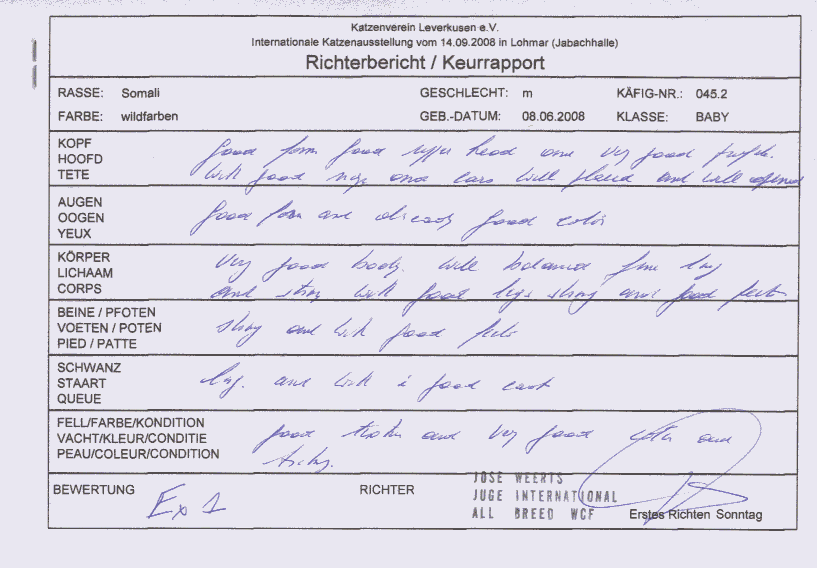 Katzenverein Leverkusen e.V.
Internationale Katzenausstellung vom 14.09.2008 in Lohmar (Jabachhalle)
Richterbericht / Keurrapport
RASSE: Somali GESCHLECHT: m KÄFIG-NR.: 045.2
FARBE: wildfarben GEB.-DATUM: 08.06.2008 KLASSE: BABY
KOPF
HOOFD
TETE
Good form good head and very good profile.
With good and ears well placed and well opened
AUGEN
OOGEN
YEUX
Good form and already good color
KÖRPER
LICHAAM
CORPS
Very good body. well balanced, fine long
and strong with good legs strong and good feets
BEINE / PFOTEN
VOETEN / POTEN
PIED / PATTE
strong and with good feets
SCHWANZ
STAART
QUEUE
long. and with a good coat
FELL/FARBE/KONDITION
VACHT/KLEUR/CONDITIE
PEAU/COLEUR/CONDITION
good and very good color and
ticking.
BEWERTUNG Ex 1 RICHTER
JOSE WEERTS
JUGE INTERNATIONAL
ALL BREED WCF
Erstes Richten Sonntag